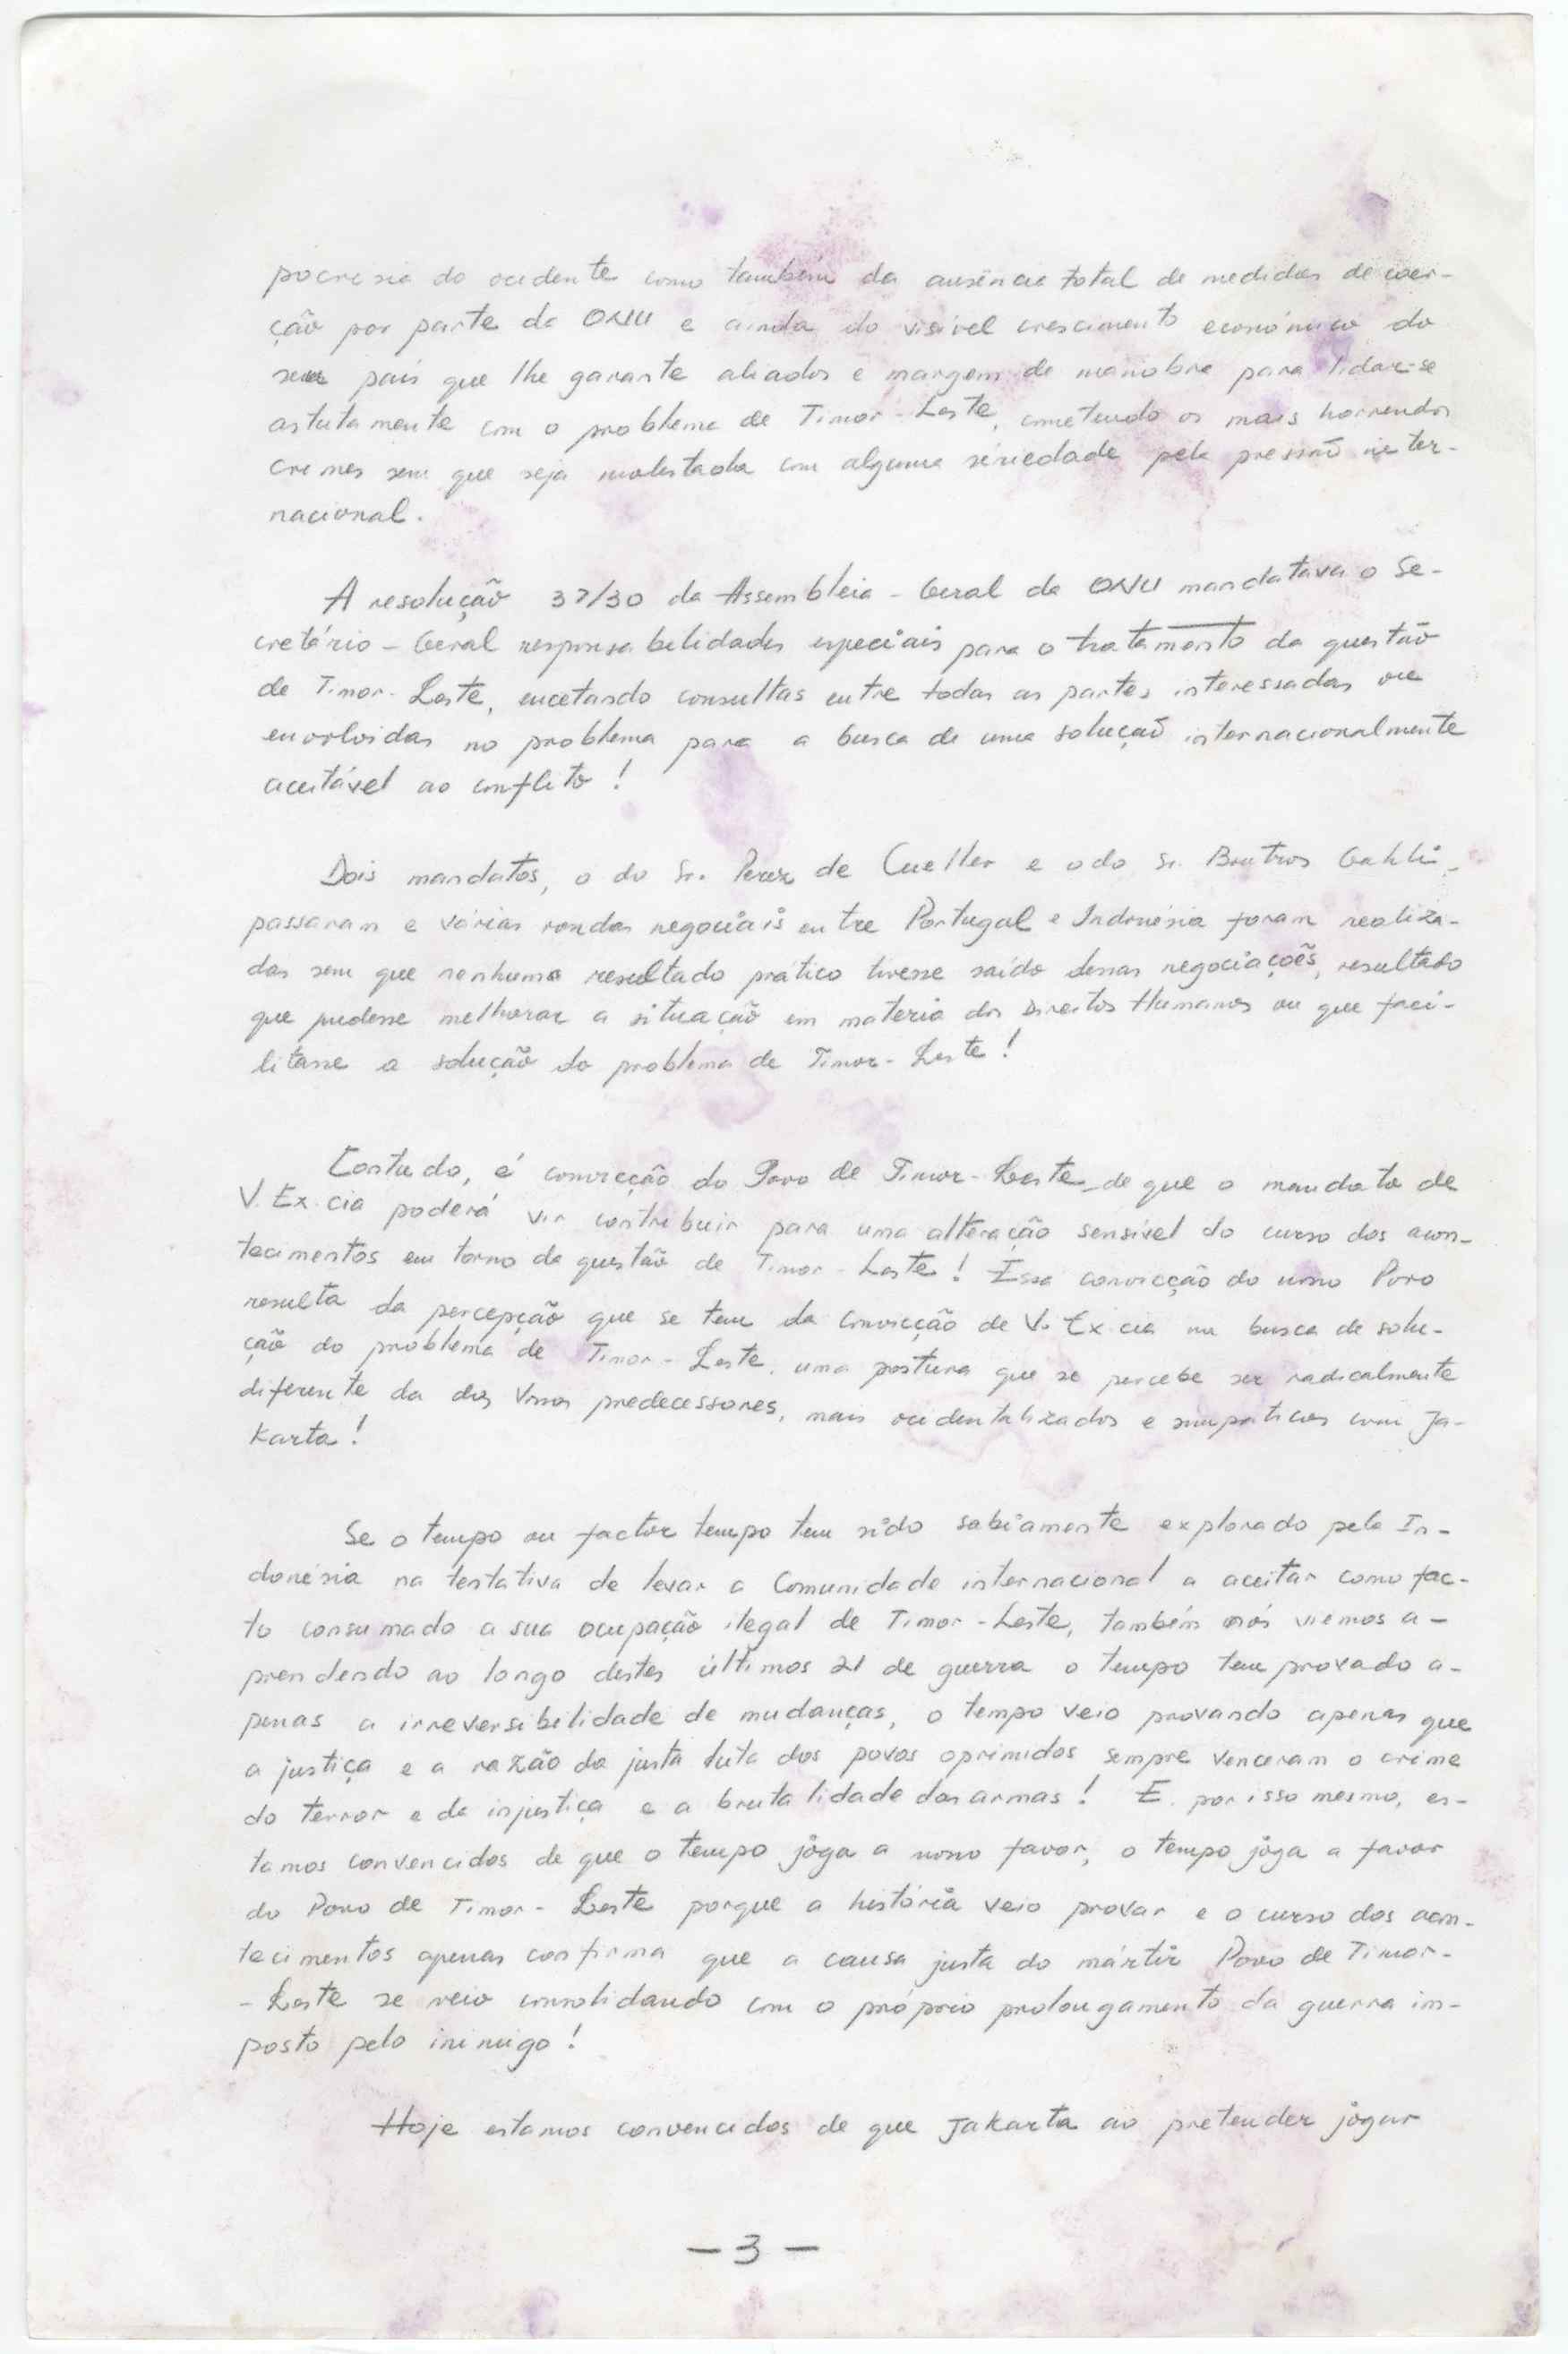 pocresia do ocidente como também da ausência total de medidas de coer-
ção por parte da ONU e ainda do visível crescimento económico do
seu país que lhe garante aliados e margem de manobra para lidar-se
astutamente com o problema de Timor-Leste, cometendo os mais horrendos
crimes sem que seja molestada com alguma seriedade pela pressão inter-
nacional.
A resolução 37/30 da Assembleia-Geral da ONU mandatava o Se-
cretário-Geral responsabilidades especiais para o tratamento da questão
de Timor-Leste, encetando consultas entre todas as partes interessadas ou
envolvidas no problema para a busca de uma solução internacionalmente
aceitável ao conflito!
Dois mandatos, o do Sr. Perez de Cueller e o do Sr. Boutros Gahli,
passaram e várias rondas negociais entre Portugal e Indonésia foram realiza-
das sem que nenhuma resultado prático tivesse saído dessas negociações, resultado
que pudesse melhorar a situação em materia dos Direitos Humanos ou que faci-
litasse a solução do problema de Timor-Leste!
Contudo, é convicção do Povo de Timor-Leste de que o mandato de
V. Ex.cia poderá vir contribuir para uma alteração sensível do curso dos acon-
tecimentos em torno da questão de Timor-Leste! Essa convicção do nosso Povo
resulta da percepção que se tem da convicção de V. Ex.cia na busca de solu-
ção do problema de Timor-Leste, uma postura que se percebe ser radicalmente
diferente da dos Vossos predecessores, mais ocidentalizados e simpaticos com Ja-
karta!
Se o tempo ou factor tempo tem sido sabiamente explorado pela In-
donésia na tentativa de levar a Comunidade internacional a aceitar como fac-
to consumado a sua ocupação ilegal de Timor-Leste, também nós viemos a-
prendendo ao longo destes últimos 21 de guerra o tempo tem provado a-
penas a irreversibilidade de mudanças, o tempo veio provando apenas que
a justiça e a razão da justa luta dos povos oprimidos sempre venceram o crime
do terror e da injustiça e a brutalidade das armas! E. por isso mesmo, es-
tamos convencidos de que o tempo joga a nosso favor, o tempo joga a favor
do Povo de Timor-Leste porque a história veio provar e o curso dos acon-
tecimentos apenas confirma que a causa justa do mártir Povo de Timor-
-Leste se veio consolidando com o próprio prolongamento da guerra im-
posto pelo inimigo!
Hoje estamos convencidos de que Jakarta ao pretender jogar
- 3 -